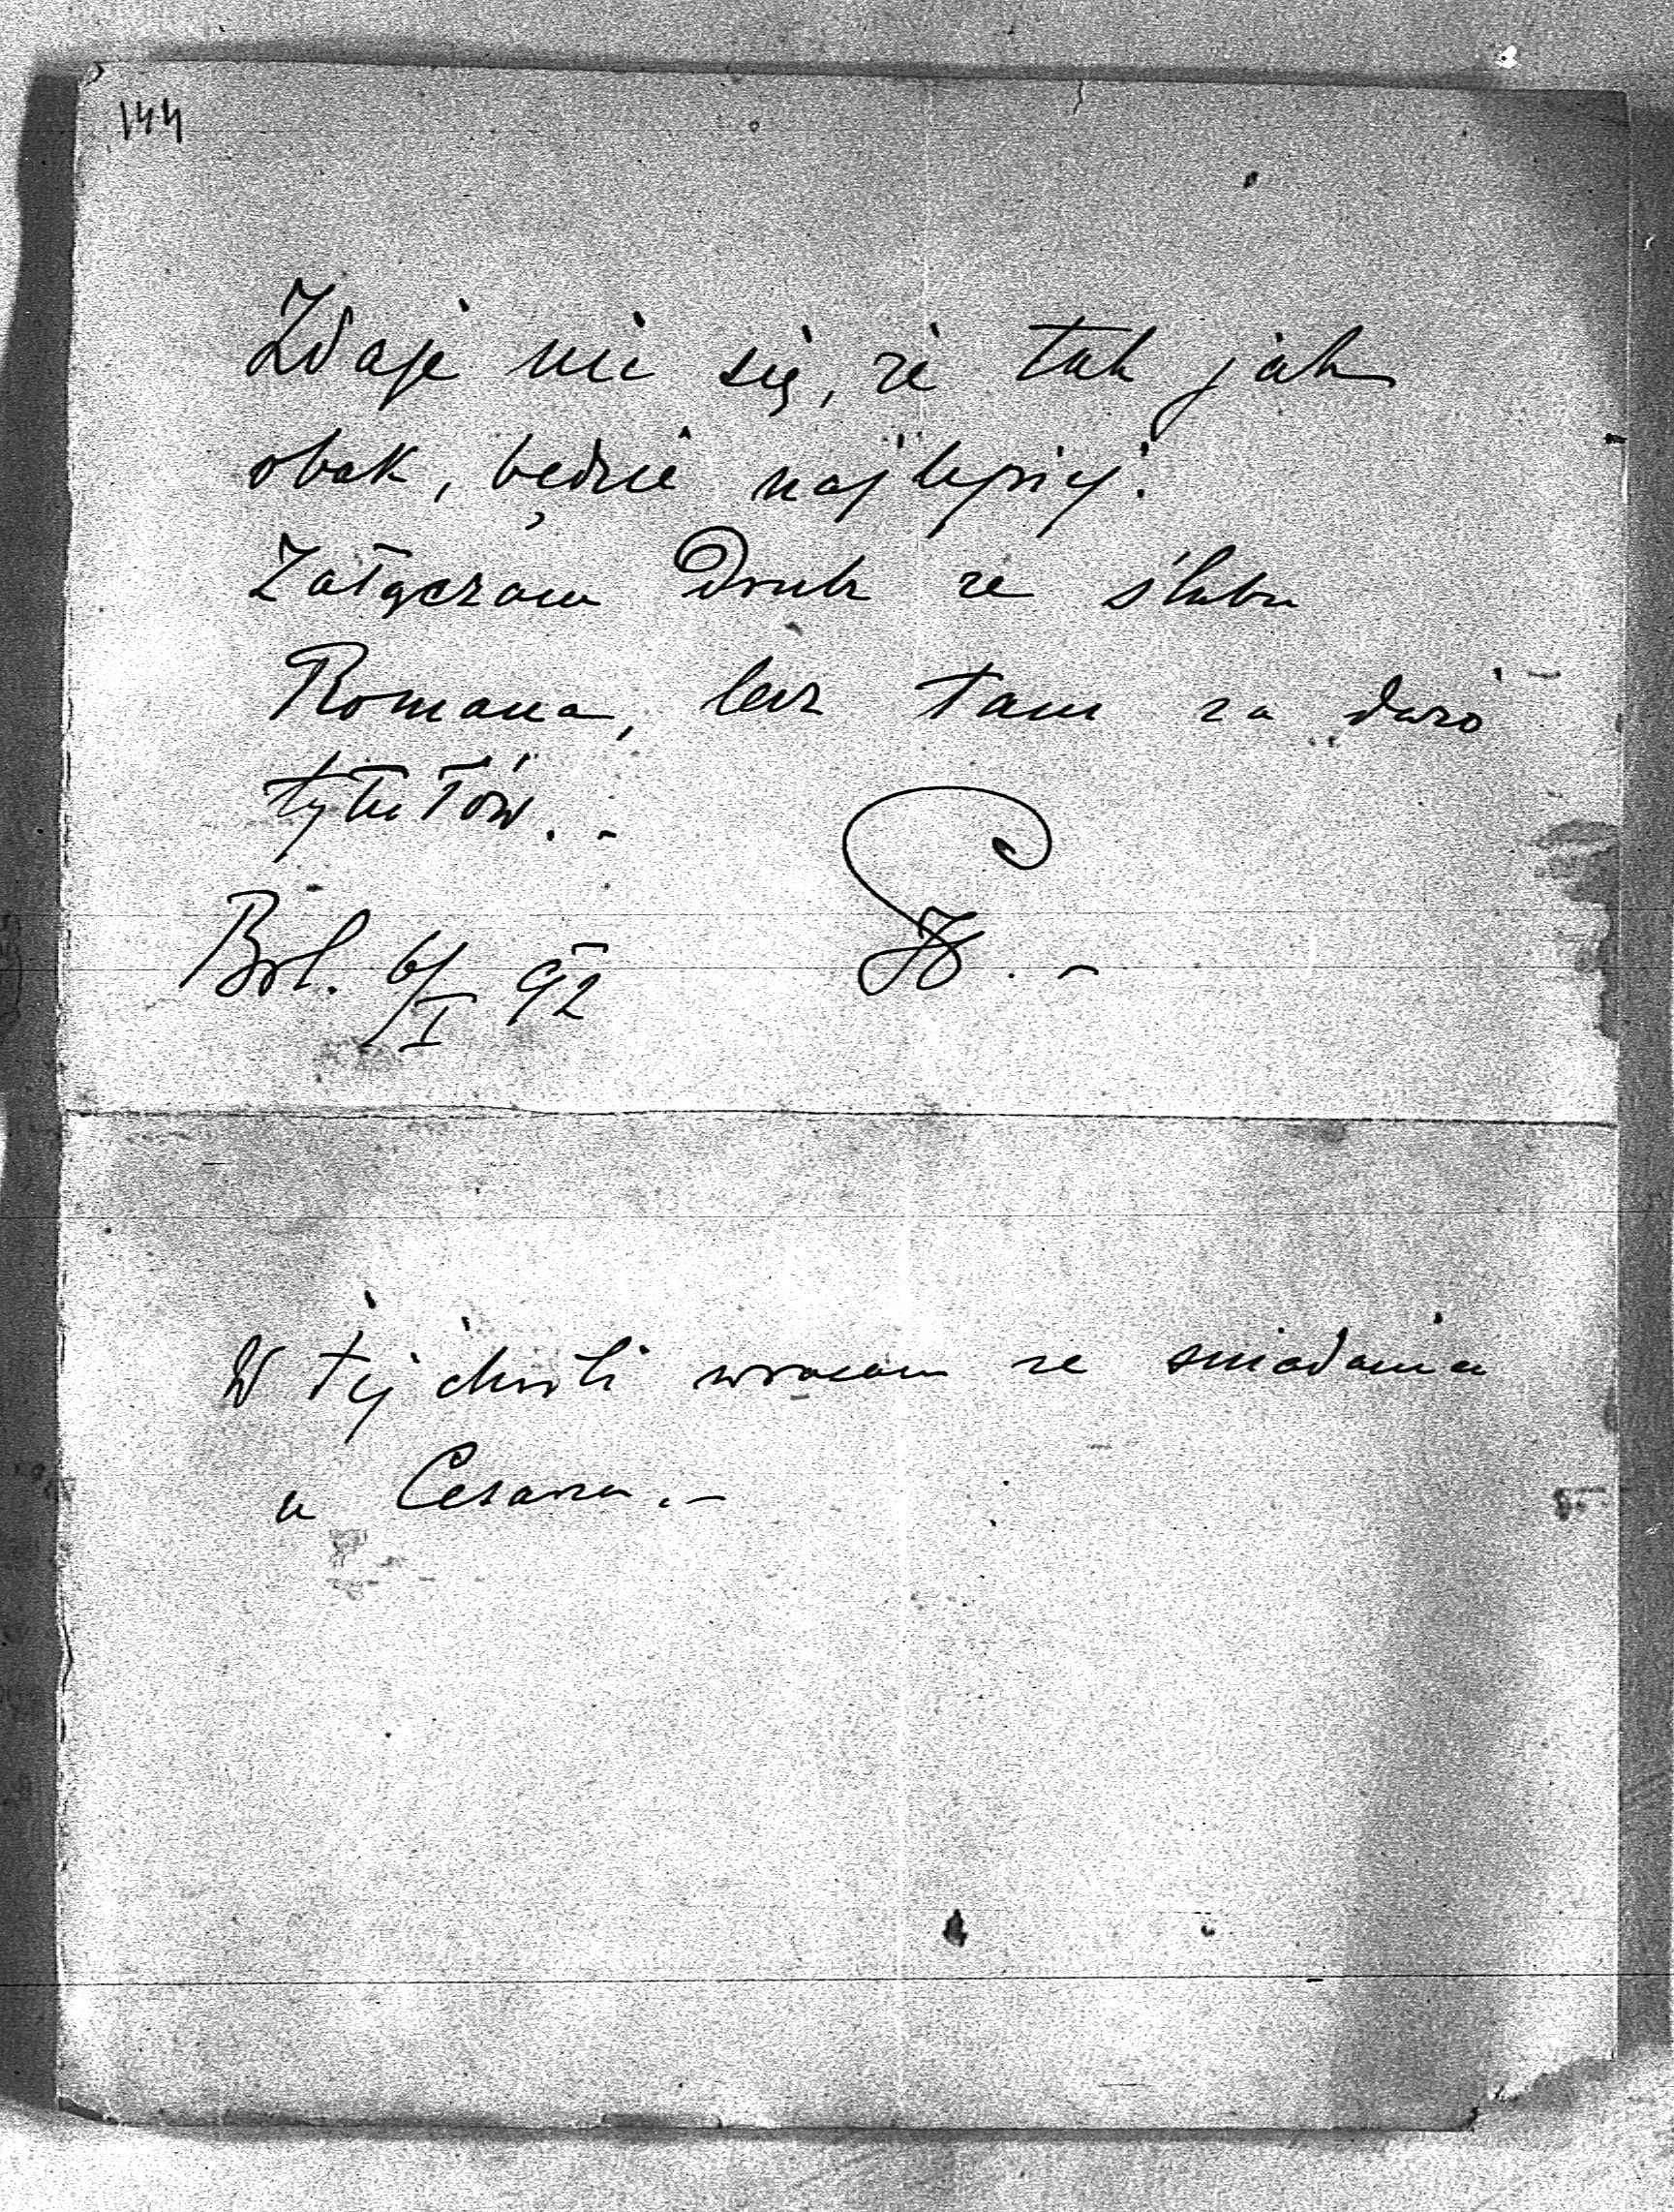 144
Zdaje mi się, że tak jak
obok, będzie najlepiej.
Załączam Druk ze ślubu
Romana, lecz tam za dużo
tytułów. -
Brl. 6/I 92
W tej chwili wracam ze śniadania
u Cesarza. -